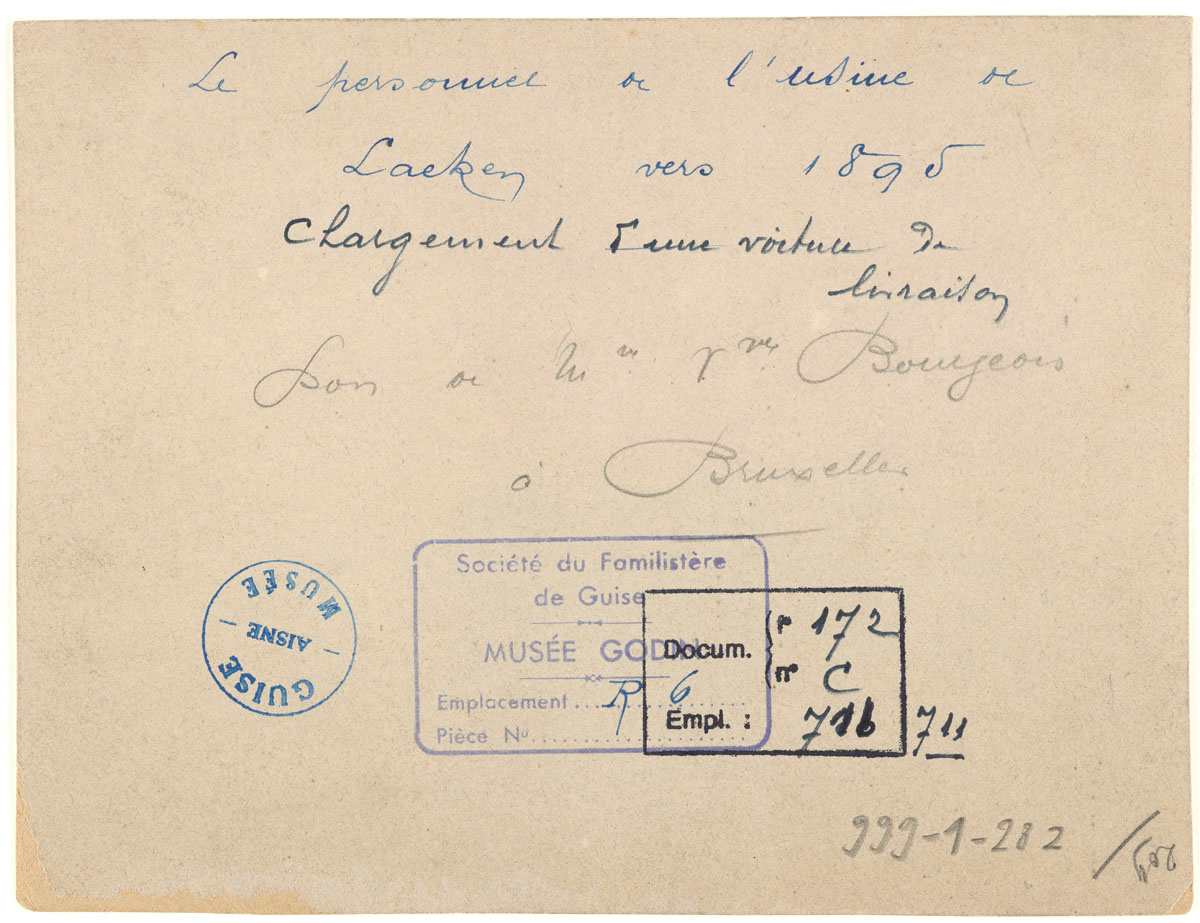 Le personnel de l'usine de
Laeken vers 1895
Chargement d'une voiture de
livraison
Don de Mme Vve Bourgeois
à Bruxelles
Société du Familistère
de Guise
MUSÉE GODIN
Emplacement R 6
Pièce No
MUSÉE
AISNE
GUISE
Docum. r 172
n° C
Empl. : 716 711
999-1-282